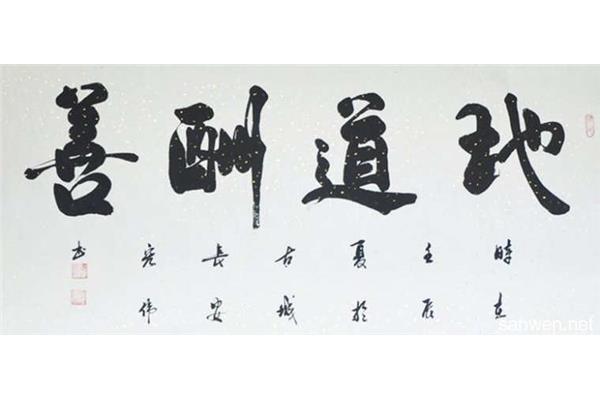 地道酬善
時在
壬辰
夏於
古城
長安
伟
书
sanwen.net